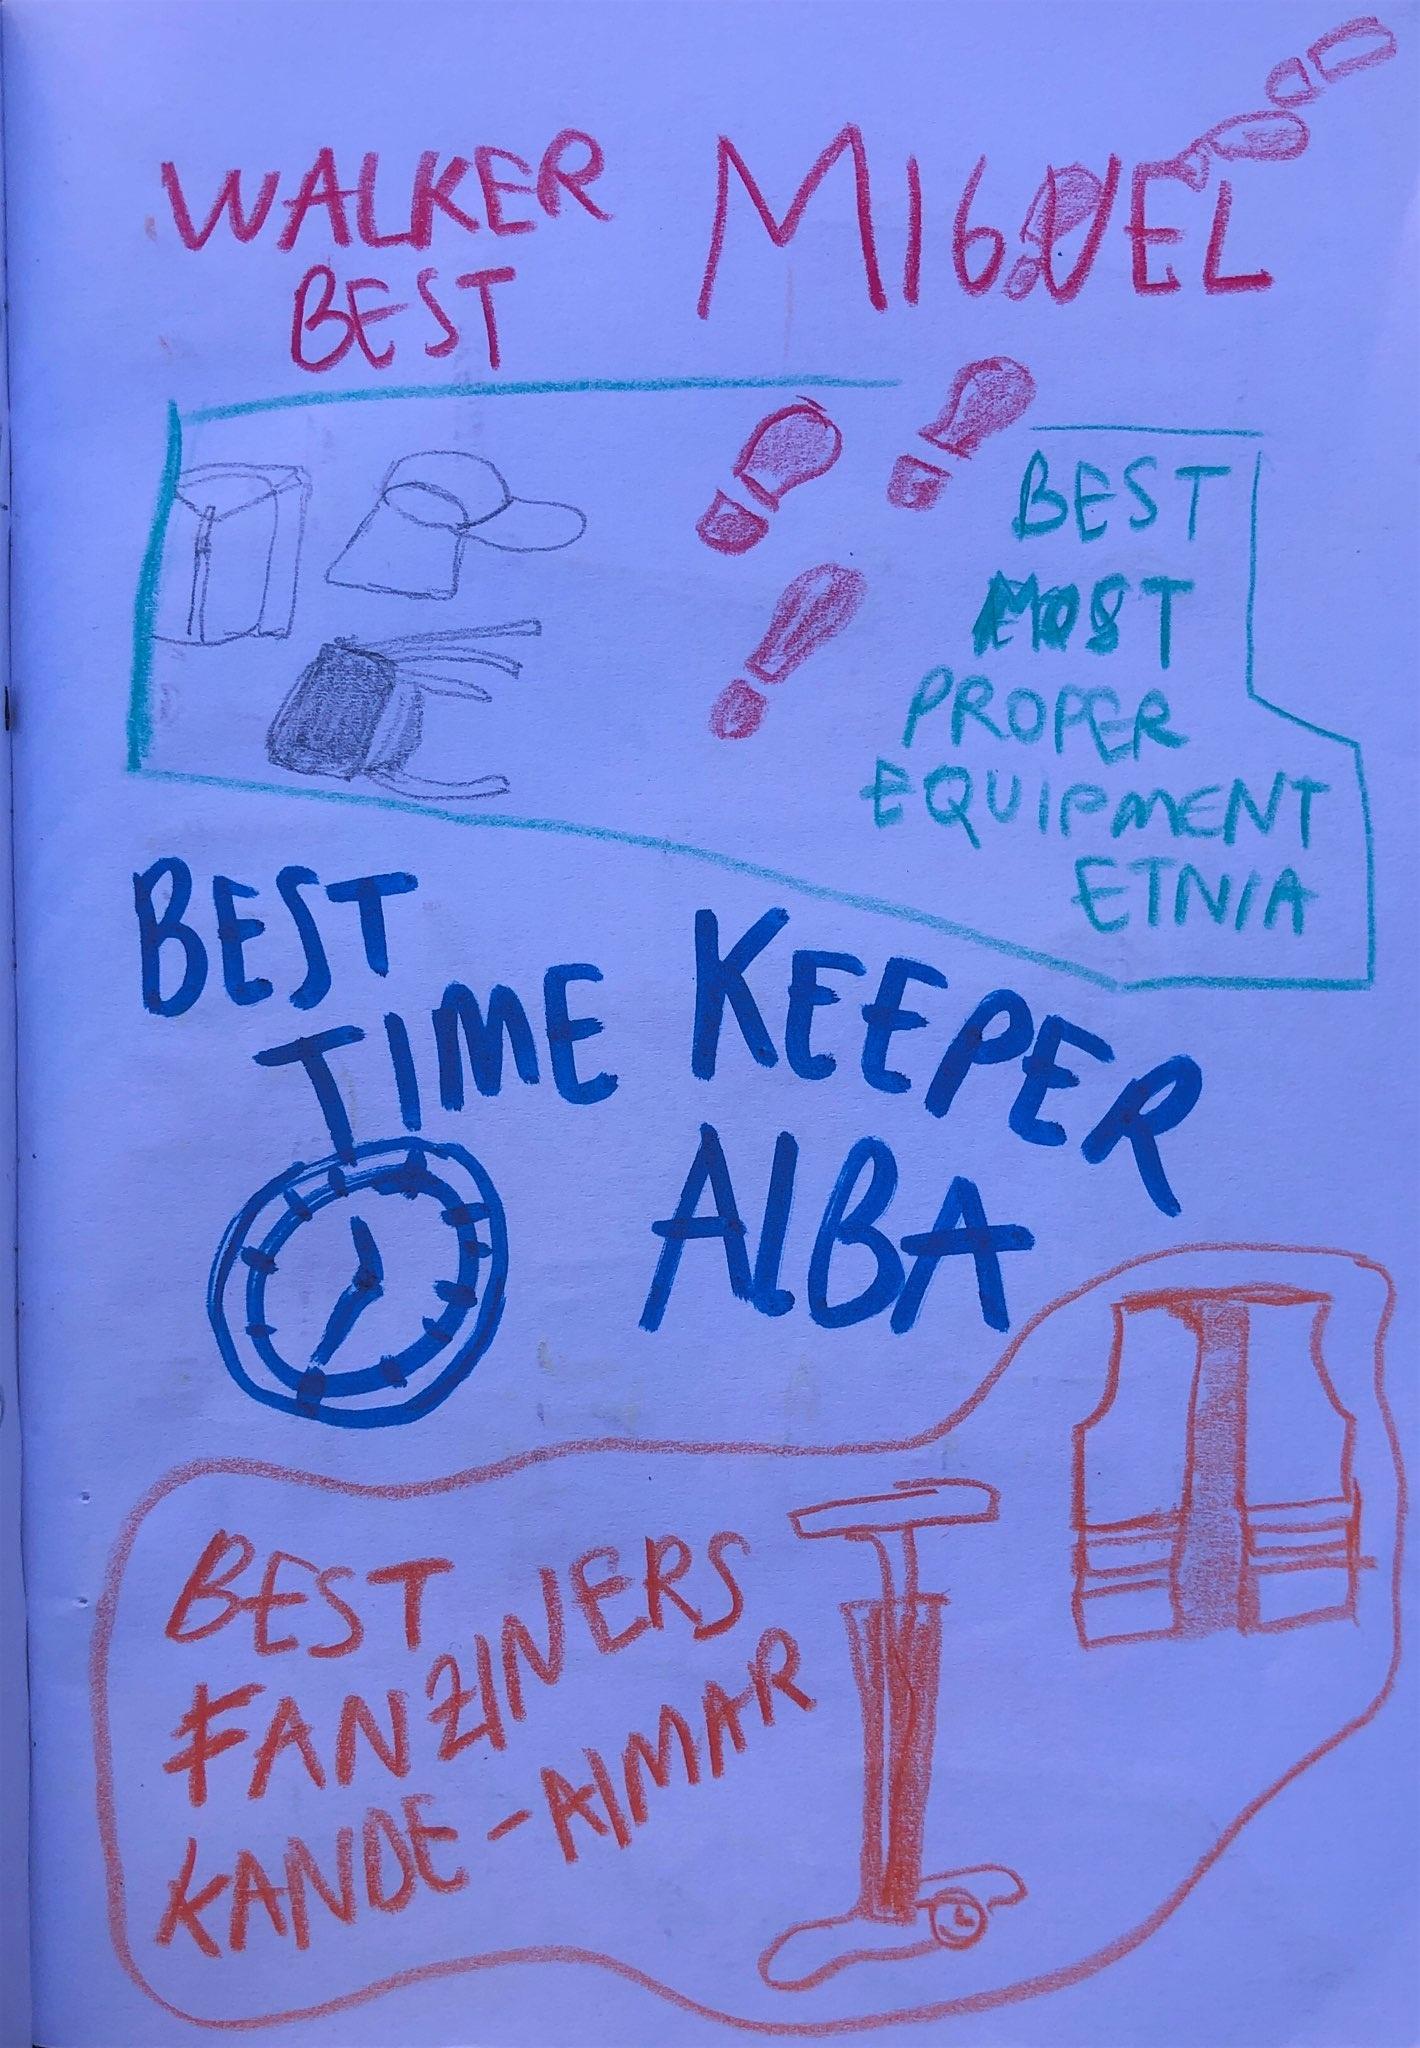 WALKER
BEST
MIGUEL
BEST
MOST
PROPER
EQUIPMENT
ETNIA
BEST
TIME KEEPER
ALBA
BEST
FANZINERS
KANDE-AIMAR